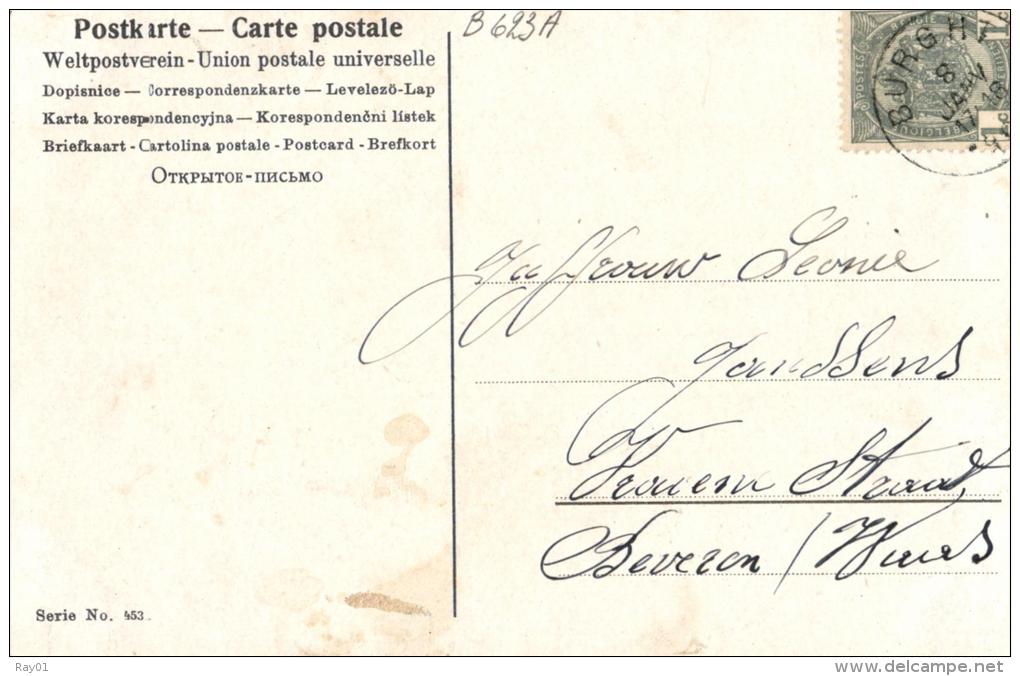 Postkarte — Carte postale
Weltpostverein - Union postale universelle
Dopisnice — Correspondenzkarte — Levelező-Lap
Karta korespondencyjna — Korespondenční lístek
Briefkaart - Cartolina postale - Postcard - Brefkort
Открытое-письмо
B 623A
POSTES BELGIQUE
BURGHT
8
JANV
Juffrouw Leonie
Janssens
Straat
Beveren / Waas
Serie No. 453
Ray01
delcampe.net